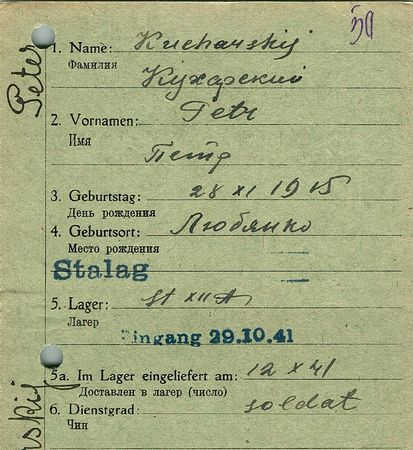 Peter
1. Name: Kucharskij
Фамилия Кухарский
2. Vornamen: Petr
Имя
Петр
3. Geburtstag: 28 XI 1915
День рождения
4. Geburtsort: Любянко
Место рождения
Stalag
5. Lager: St XII A
Лагер
Eingang 29.10.41
5a. Im Lager eingeliefert am: 12 X 41
Доставлен в лагер (число)
6. Dienstgrad: soldat
Чин